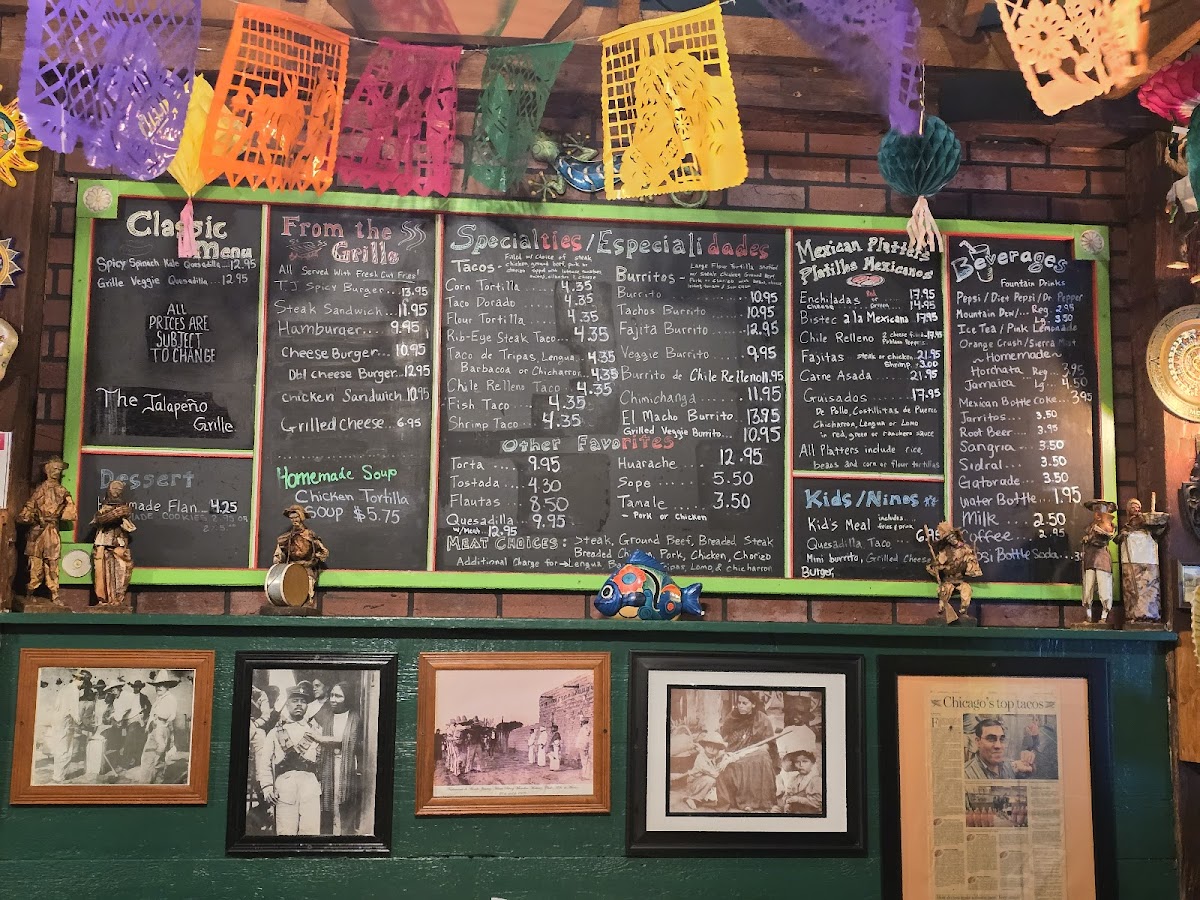 Classic
Menu
Spicy Spinach Kale Quesadilla...12.95
Grille Veggie Quesadilla... 12.95
ALL
PRICES ARE
SUBJECT
TO CHANGE
The Jalapeño
Grille
Dessert
Homemade Flan... 4.25
MADE COOKIES 2.95
From the
Grille
All Served With Fresh Cut Fries
T.J Spicy Burger... 13.95
Steak Sandwich... 11.95
Hamburger... 9.95
Cheese Burger... 10.95
Dbl Cheese Burger...12.95
Chicken Sandwich 10.95
Grilled Cheese... 6.95
Homemade Soup
Chicken Tortilla
Soup $5.75
Specialties/Especialidades
Tacos- Filled w/choice of steak,
chicken, ground beef, pork or
chorizo topped with lettuce tomatoes
Corn Tortilla .... 4.35
Taco Dorado .... 4.35
Flour Tortilla .... 4.35
Rib-Eye Steak Taco .... 4.35
Taco de Tripas, Lengua, 4.35
Barbacoa or Chicharron.. 4.35
Chile Relleno Taco .... 4.35
Fish Taco .... 4.35
Shrimp Taco .... 4.35
Burritos- Large Flour Tortilla Stuffed
w/Steak Chicken Ground Beef
Pork or Chorizo with Beans, cheese
Burrito .... 10.95
Tachos Burrito .... 10.95
Fajita Burrito .... 12.95
Veggie Burrito .... 9.95
Burrito de Chile Relleno 11.95
Chimichanga .... 11.95
El Macho Burrito. 13.95
Grilled Veggie Burrito.... 10.95
Other Favorites
Torta .... 9.95
Tostada .... 4.30
Flautas .... 8.50
Quesadilla ... 9.95
w/Meat... 12.95
Huarache .... 12.95
Sope .... 5.50
Tamale .... 3.50
- Pork or Chicken
MEAT CHOICES: Steak, Ground Beef, Breaded Steak
Breaded Chicken, Pork, Chicken, Chorizo
Additional Charge for→ Lengua, Tripas, Lomo & chicharron
Mexican Platters
Platillos Mexicanos
Enchiladas 17.95
cheese 14.95
Bistec a la Mexicana 17.95
Chile Relleno 2 cheese filled 17.95
Poblano Peppers
Fajitas steak or chicken. 21.95
Shrimp.. 3.00
Carne Asada.... 21.95
Guisados ....... 17.95
De Pollo, Costillitas de Puerco
Chicharron, Lengua or Lomo
in red, green or ranchero sauce
All Platters include rice,
beans and corn or flour tortillas
Kids/Ninos
Kid's Meal includes
fries & drink 6.95
Quesadilla, Taco
Mini burrito, Grilled Cheese
Burger,
Beverages
Fountain Drinks
Pepsi / Diet Pepsi / Dr. Pepper
Mountain Dew/... Reg. 2.95
Lg 3.50
Ice Tea / Pink Lemonade
Orange Crush/Sierra Mist
~Homemade~
Horchata Reg.. 3.95
Jamaica Lg... 4.50
Mexican Bottle Coke... 3.95
Jarritos... 3.50
Root Beer... 3.95
Sangria... 3.50
Sidral... 3.50
Gatorade... 3.50
Water Bottle... 1.95
Milk ... 2.50
Coffee ... 2.95
Pepsi Bottle Soda..
Chicago's top tacos